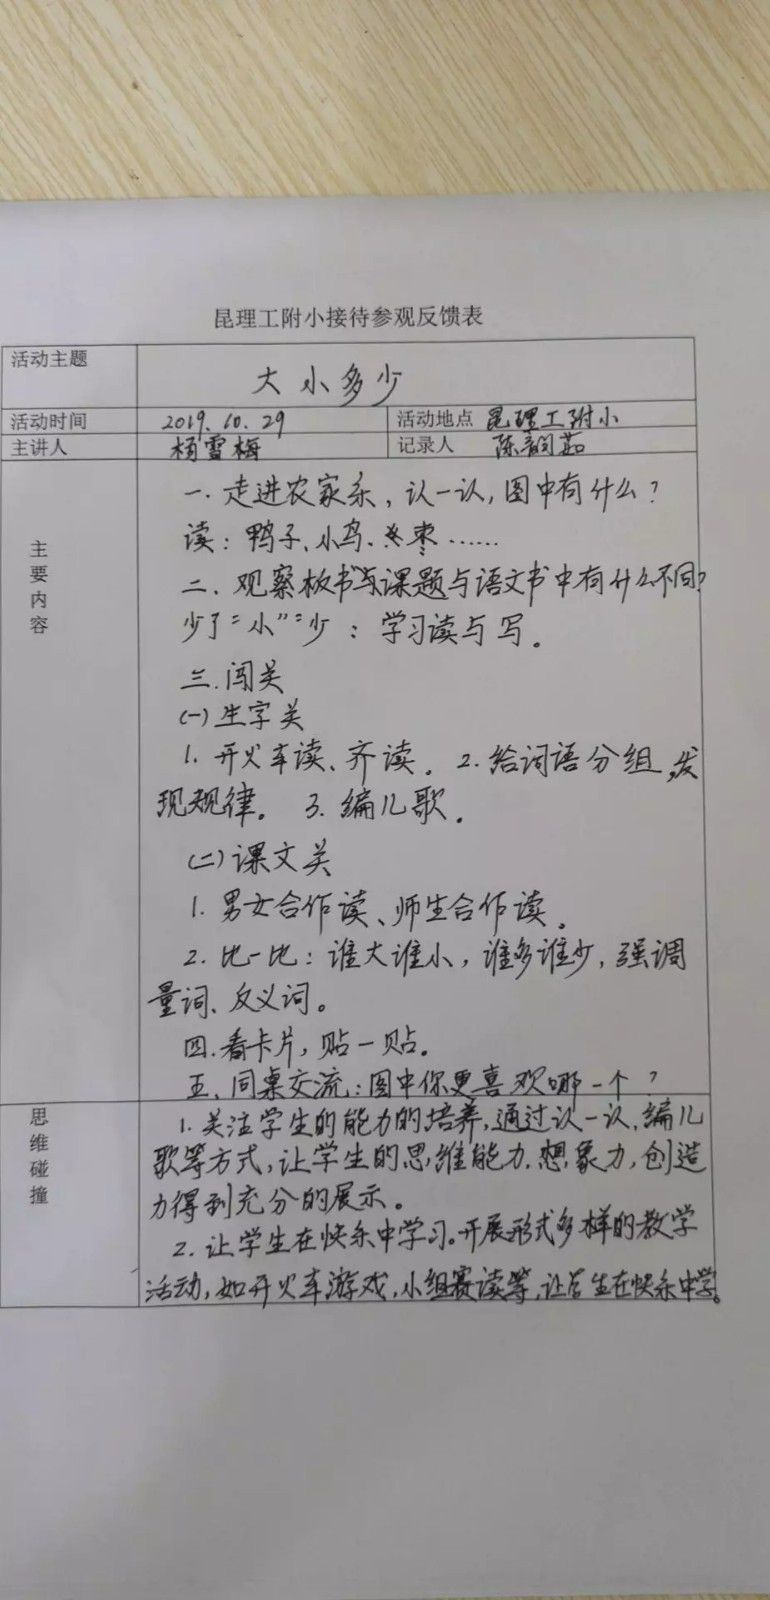 昆理工附小接待参观反馈表
活动主题 大小多少
活动时间 2019.10.29 活动地点 昆理工附小
主讲人 杨雪梅 记录人 陈韵茹
主要内容
一.走进农家乐,认一认,图中有什么?
读:鸭子、小鸟、枣……
二.观察板书与课题与语文书中有什么不同?
少了“小”“少:学习读与写。
三.闯关
(一)生字关
1.开火车读、齐读。2.给词语分组,发
现规律。3.编儿歌。
(二)课文关
1.男女合作读、师生合作读。
2.比一比:谁大谁小,谁多谁少,强调
量词、反义词。
四.看卡片,贴一贴。
五.同桌交流:图中你更喜欢哪一个?
思维碰撞
1.关注学生的能力的培养,通过认一认、编儿
歌等方式,让学生的思维能力.想象力,创造
力得到充分的展示。
2.让学生在快乐中学习。开展形式多样的教学
活动,如开火车游戏,小组赛读等,让学生在快乐中学。